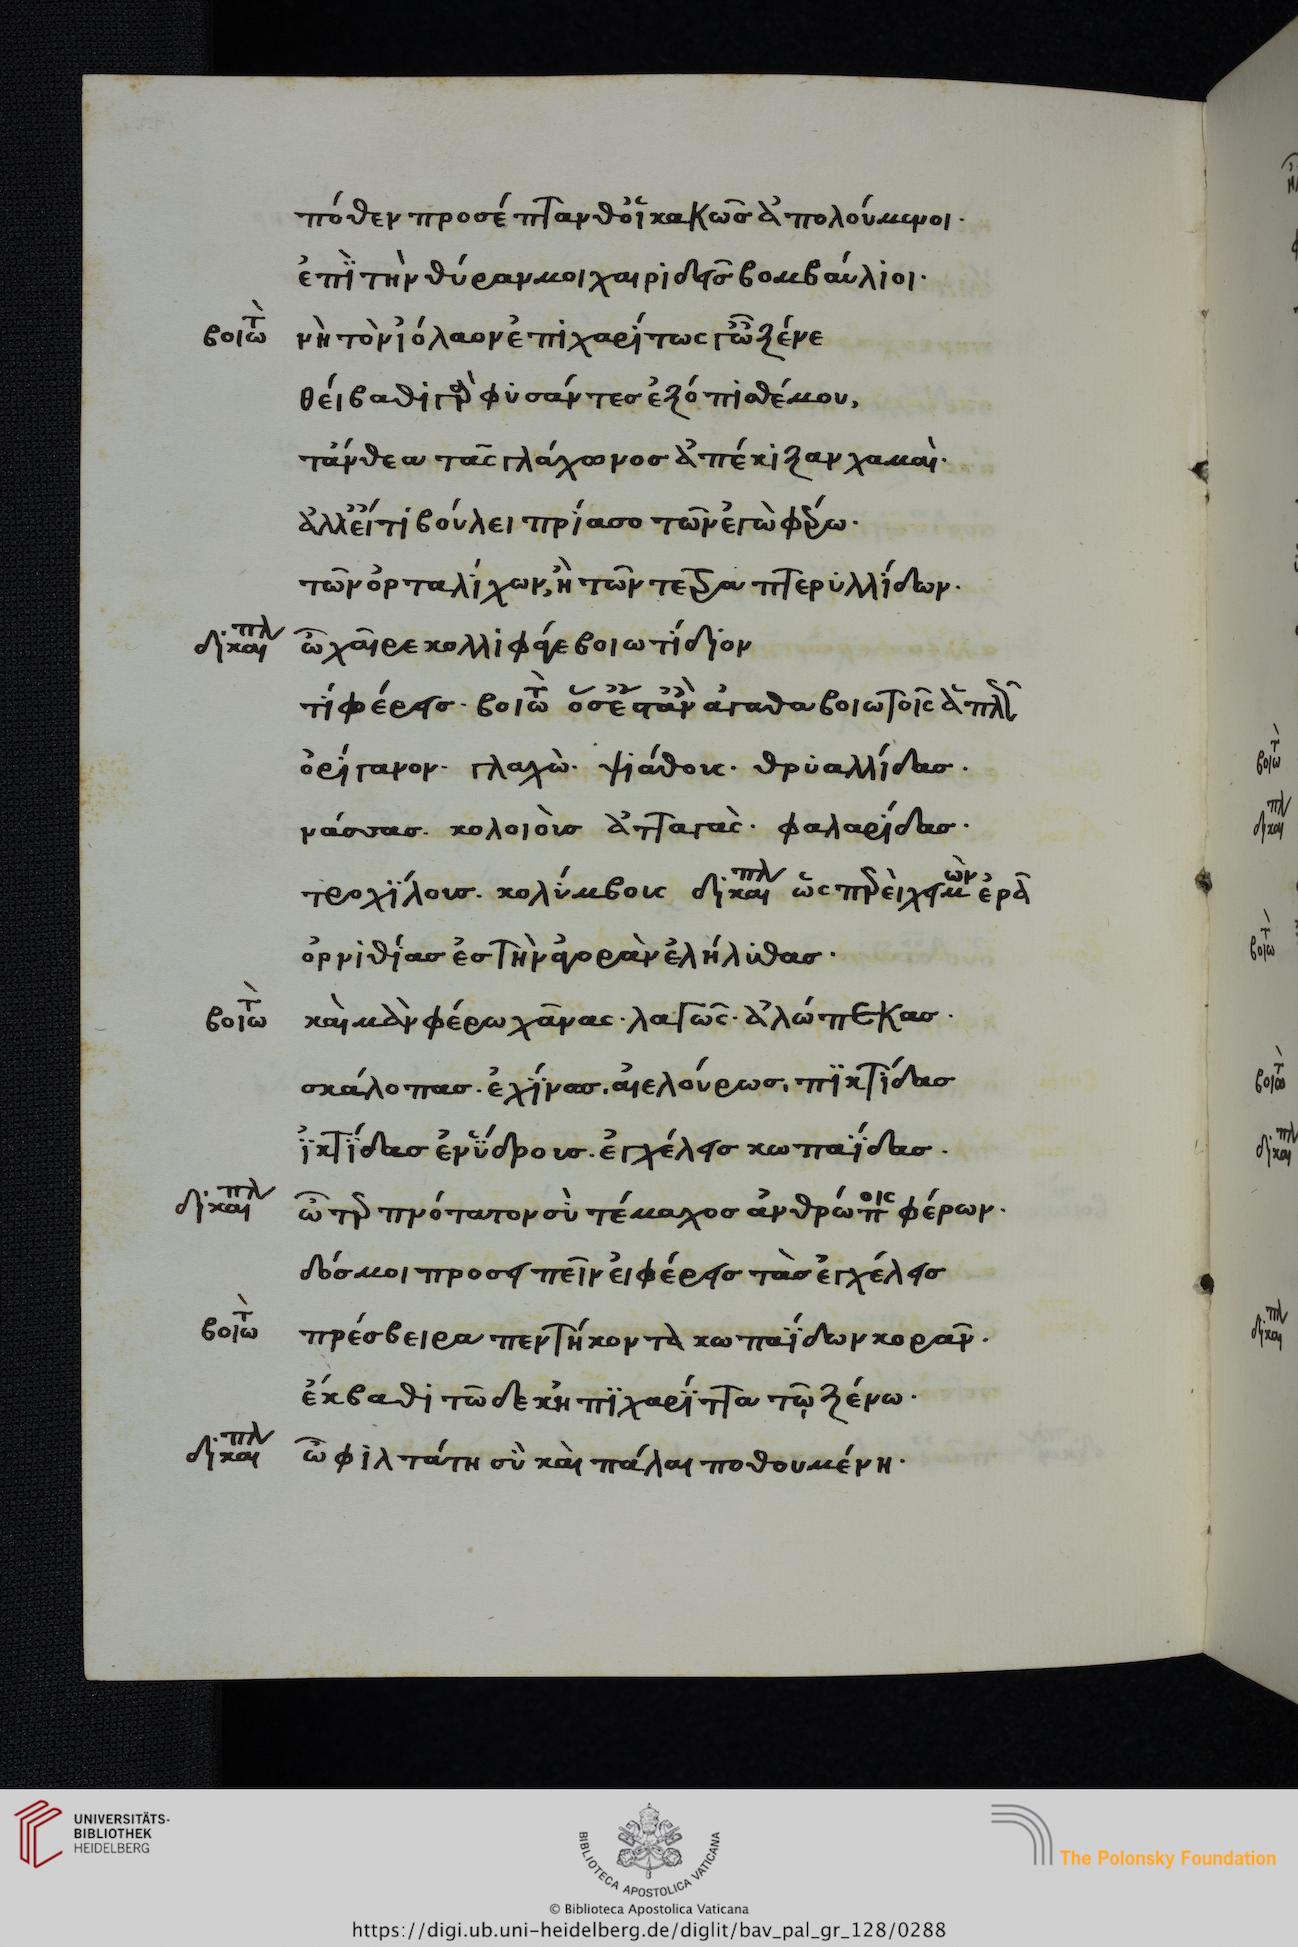 πόθεν προσέπτανθ' οἳ κακῶς ἀπολούμενοι·
ἐπὶ τὴν θύραν μοι χαιριδεῖς βομβαύλιοι·
βοιωτ νὴ τὸν ἰόλαον ἐπιχαρίτως γ' ὦ ξένε
θείβαθι γὰρ φυσάντες ἐξόπισθέ μου,
τἄνθεα τᾶς γλάχωνος ἀπέκιξαν χαμαὶ·
ἀλλ' εἴ τι βούλει πρίασο τῶν ἐγὼ φέρω·
τῶν ὀρταλίχων, ἢ τῶν τετραπτερυλλίδων·
δικαιπλ ὦ χαῖρε κολλιφάγε βοιωτίδιον
τί φέρεις· βοιωτ ὅσ' ἐστὶν ἀγαθὰ βοιωτοῖς ἁπλῶς
ὀρίγανον· γλαχὼ· ψιάθους· θρυαλλίδας·
νάσσας· κολοιοὺς ἀτταγὰς· φαλαρίδας·
τροχίλους· κολύμβους δικαιπλ ὡσπερεὶ χειμὼν ἆρα
ὀρνιθίας ἐς τὴν ἀγορὰν ἐλήλυθας·
βοιωτ καὶ μὰν φέρω χᾶνας· λαγῶς· ἀλώπεκας·
σκάλοπας· ἐχίνας· αἰελούρως· πικτίδας
ἰκτίδας ἐνύδρους· ἐγχέλεις κωπαΐδας·
δικαιπλ ὦ τερπνότατον σὺ τέμαχος ἀνθρώποις φέρων·
δός μοι προσειπεῖν εἰ φέρεις τὰς ἐγχέλεις
βοιωτ πρέσβειρα πεντήκοντα κωπαΐδων κορᾶν·
ἔκβαθι τῶδε κἠπιχαρίττα τῷ ξένω·
δικαιπλ ὦ φιλτάτη σὺ καὶ πάλαι ποθουμένη·
UNIVERSITÄTS-
BIBLIOTHEK
HEIDELBERG
BIBLIOTECA APOSTOLICA VATICANA
The Polonsky Foundation
© Biblioteca Apostolica Vaticana
https://digi.ub.uni-heidelberg.de/diglit/bav_pal_gr_128/0288